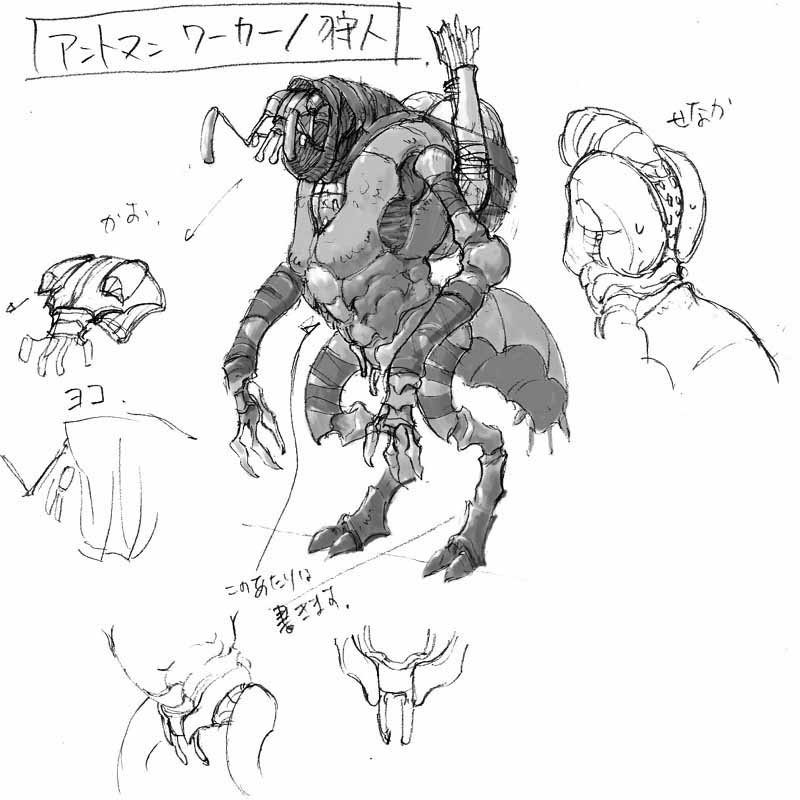 アントマン ワーカー/狩人
せなか
かお。
ヨコ.
このあたりは
書きます.